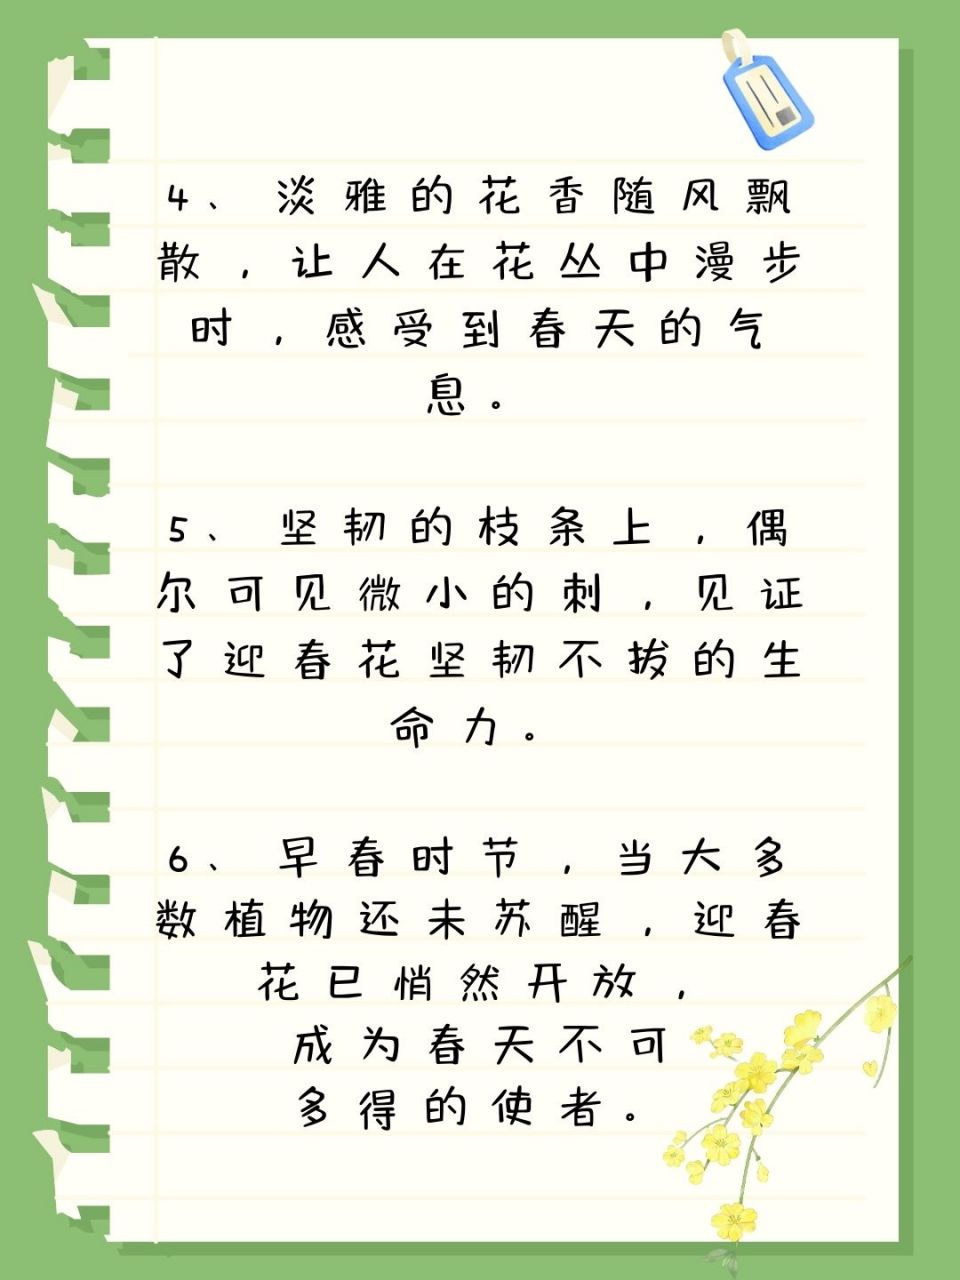 4、淡雅的花香随风飘
散，让人在花丛中漫步
时，感受到春天的气
息。
5、坚韧的枝条上，偶
尔可见微小的刺，见证
了迎春花坚韧不拔的生
命力。
6、早春时节，当大多
数植物还未苏醒，迎春
花已悄然开放，
成为春天不可
多得的使者。